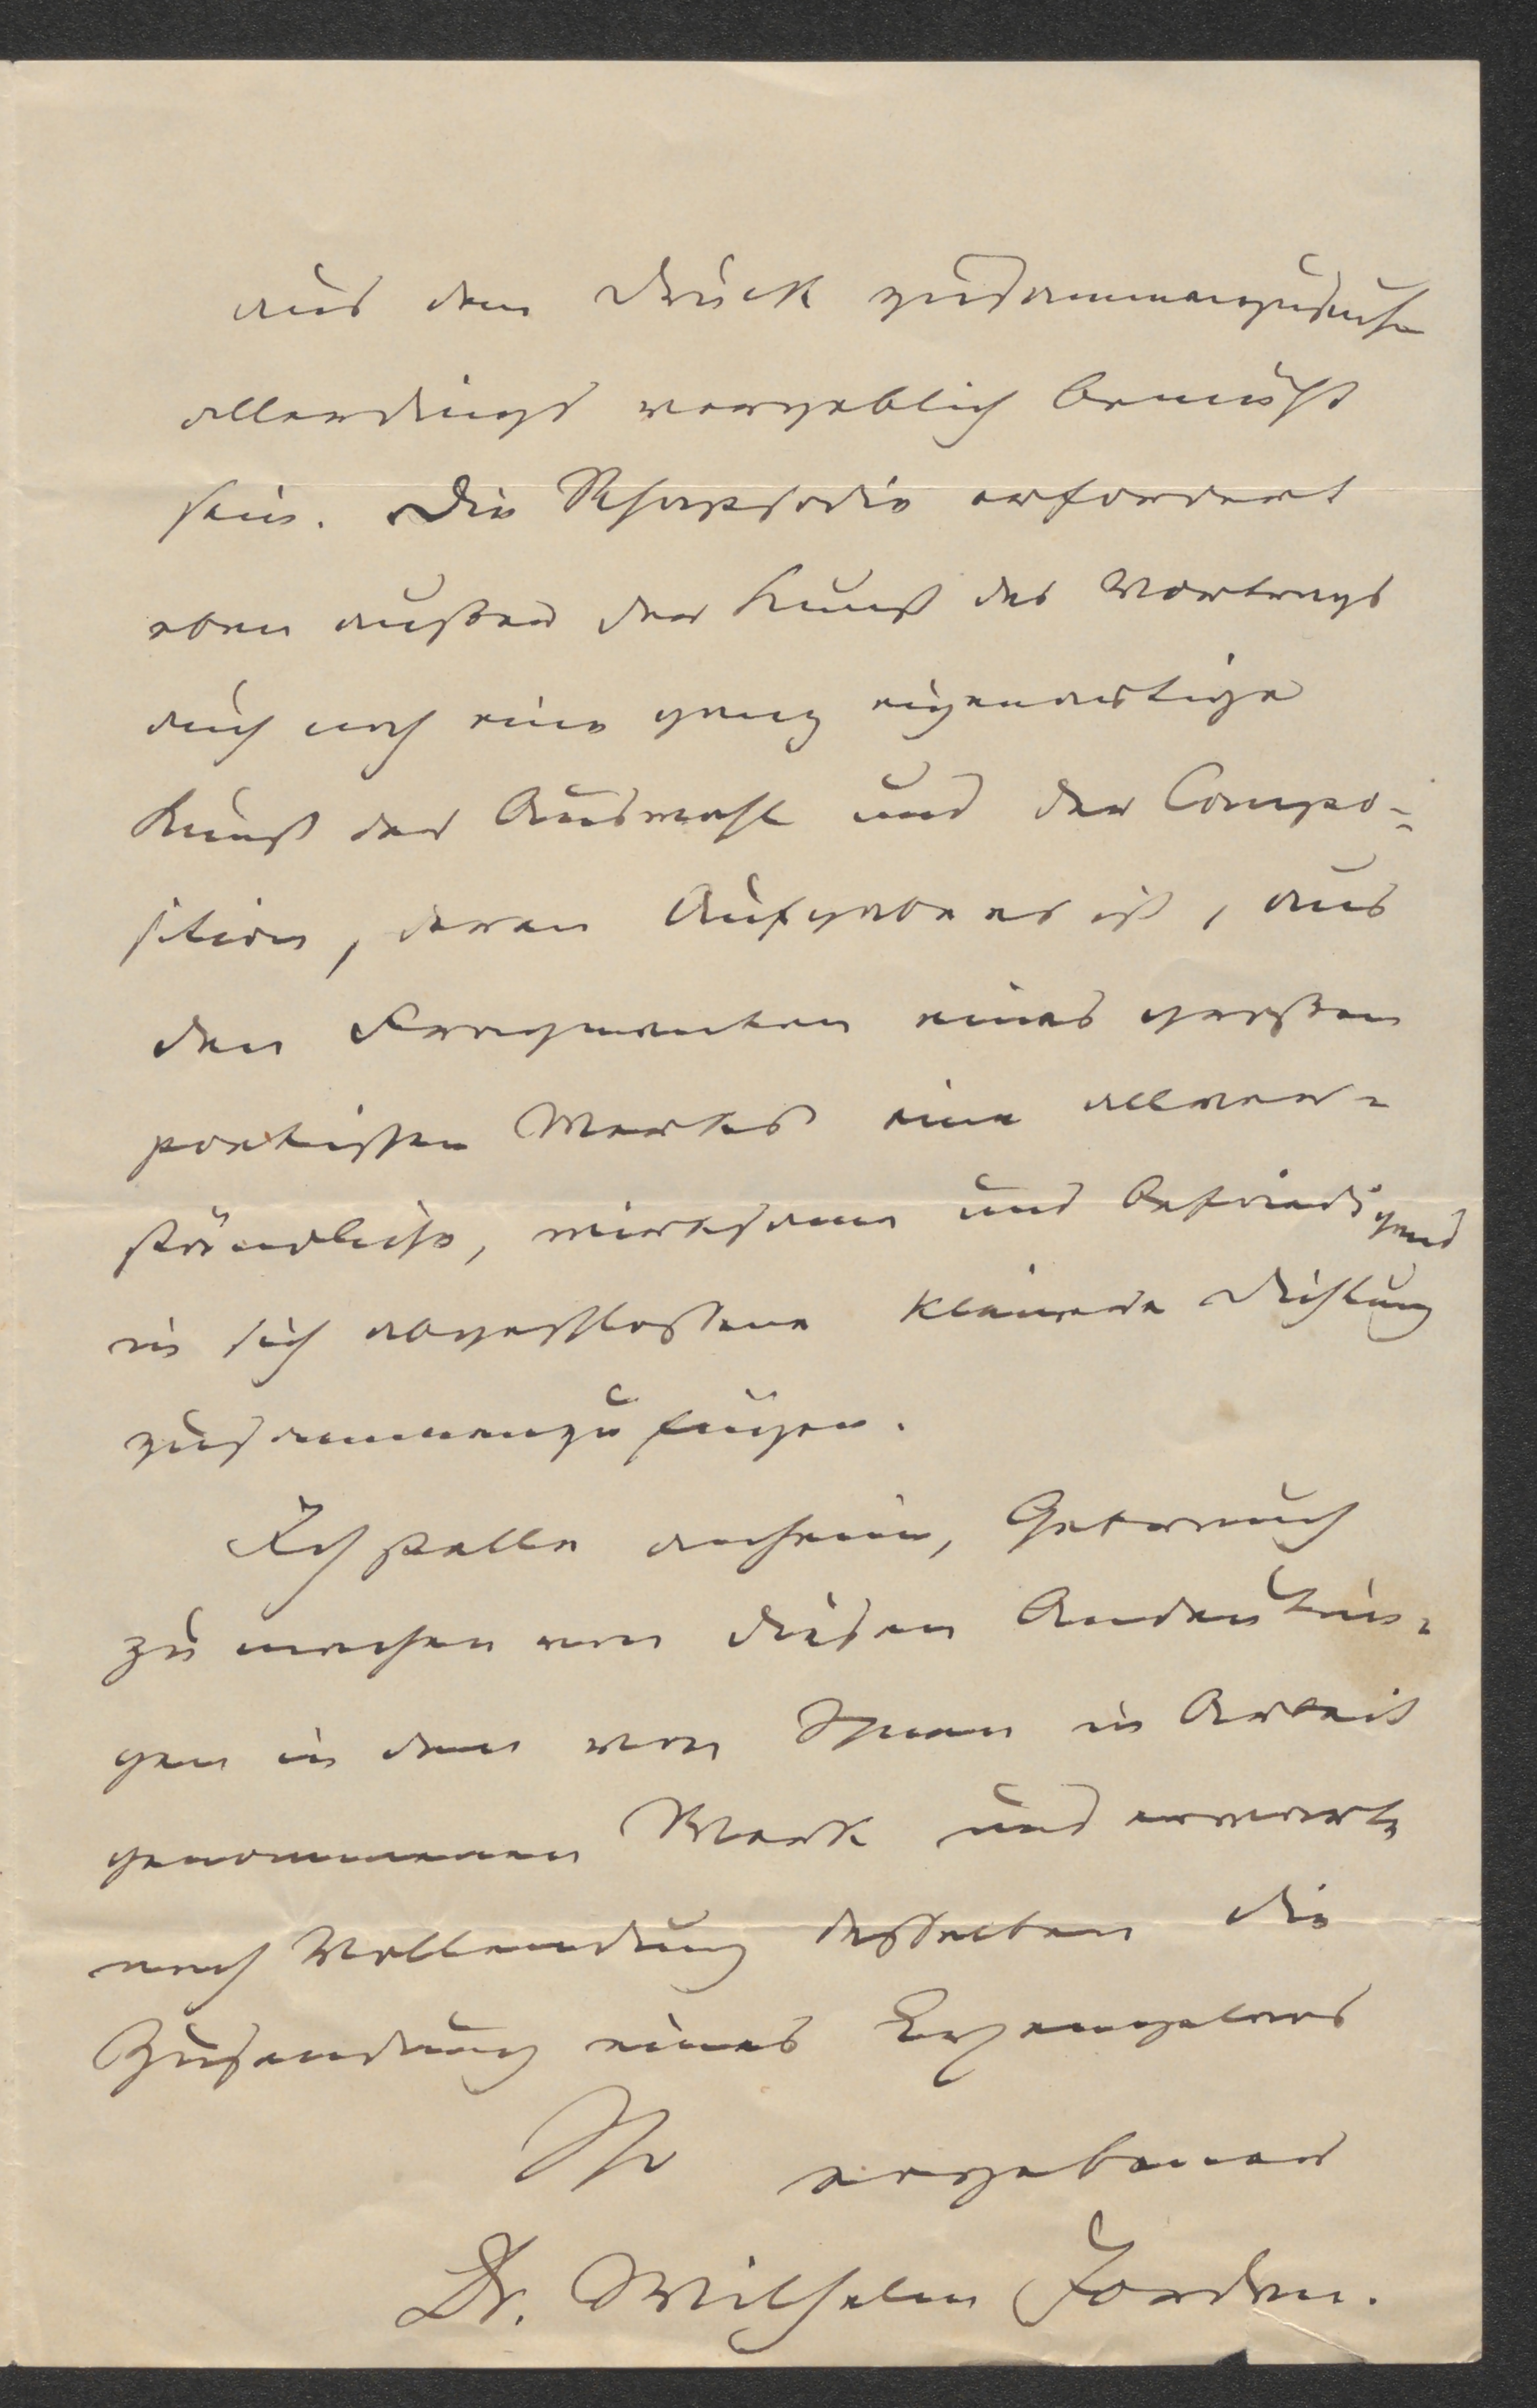 aus dem Druck zusammenzusuchen
allerdings vergeblich bemüht
sein. Die Rhapsodie erfordert
eben außer der Kunst des Vortrags
auch noch eine ganz eigenartige
Kunst der Auswahl und der Compo-
sition, deren Aufgabe es ist, aus
den Fragmenten eines großen
poetischen Werkes eine allver-
ständliche, wirksame und befriedigend
in sich abgeschlossene kleinere Dichtung
zusammenzufügen.
Ich stelle anheim, Gebrauch
zu machen von diesen Andeutun-
gen in dem von Ihnen in Arbeit
genommenen Werk und erwarte
nach Vollendung desselben die
Zusendung eines Exemplares
Ihr ergebener
Dr. Wilhelm Jordan.